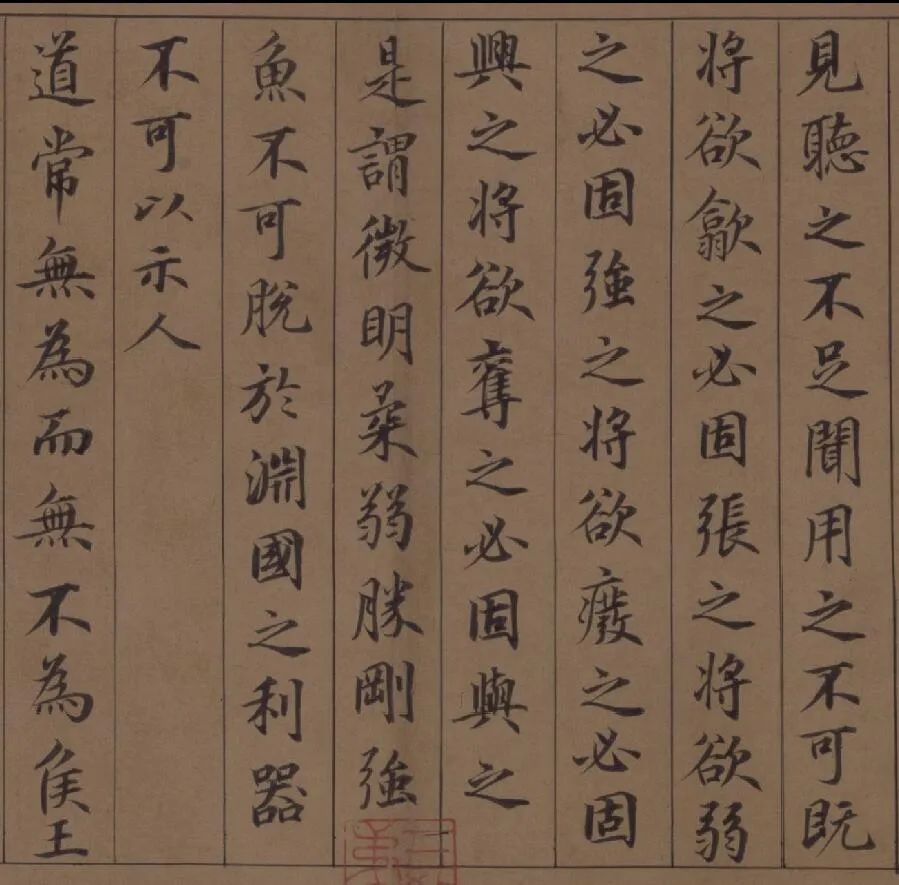 見聽之不足聞用之不可既
将欲歙之必固張之将欲弱
之必固強之将欲癈之必固
興之将欲奪之必固與之
是謂微明柔弱勝剛強
魚不可脱於淵國之利器
不可以示人
道常無為而無不為侯王